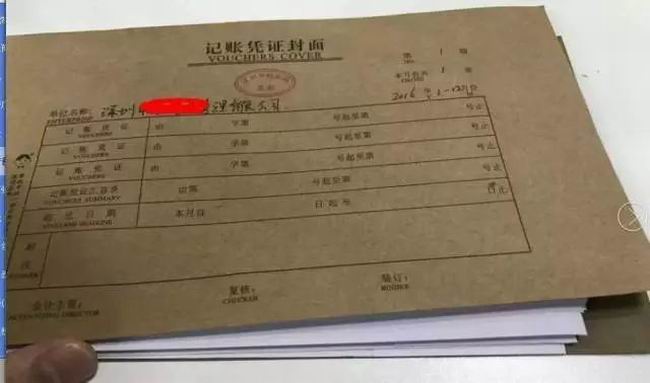 记账凭证封面
VOUCHERS COVER
第 1 册
NO.
本月共 1 册
单位名称: 深圳市 管理有限公司 2016 年 1-12 月份
ENTERPRISE
记账凭证 由 字第 号起至第 号止
VOUCHERS
记账凭证 由 字第 号起至第 号止
VOUCHERS
记账凭证 由 字第 号起至第 号止
VOUCHERS
记账凭证汇总表 由第 号起至第 号止
VOUCHERS SUMMARY
起讫日期 本月自 日起至 日止
附注
会计主管: 复核: 装订:
ACCOUNTING DIRECTOR CHECKER BINDER